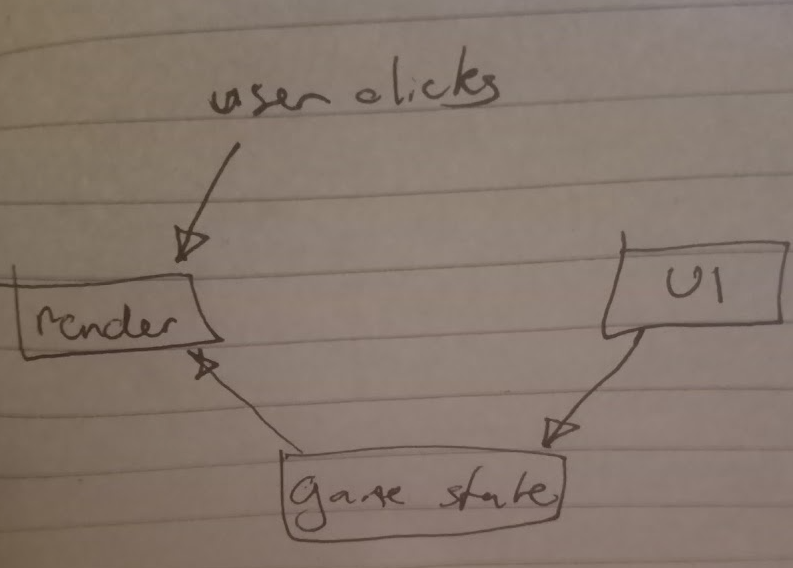 user clicks
render
UI
game state